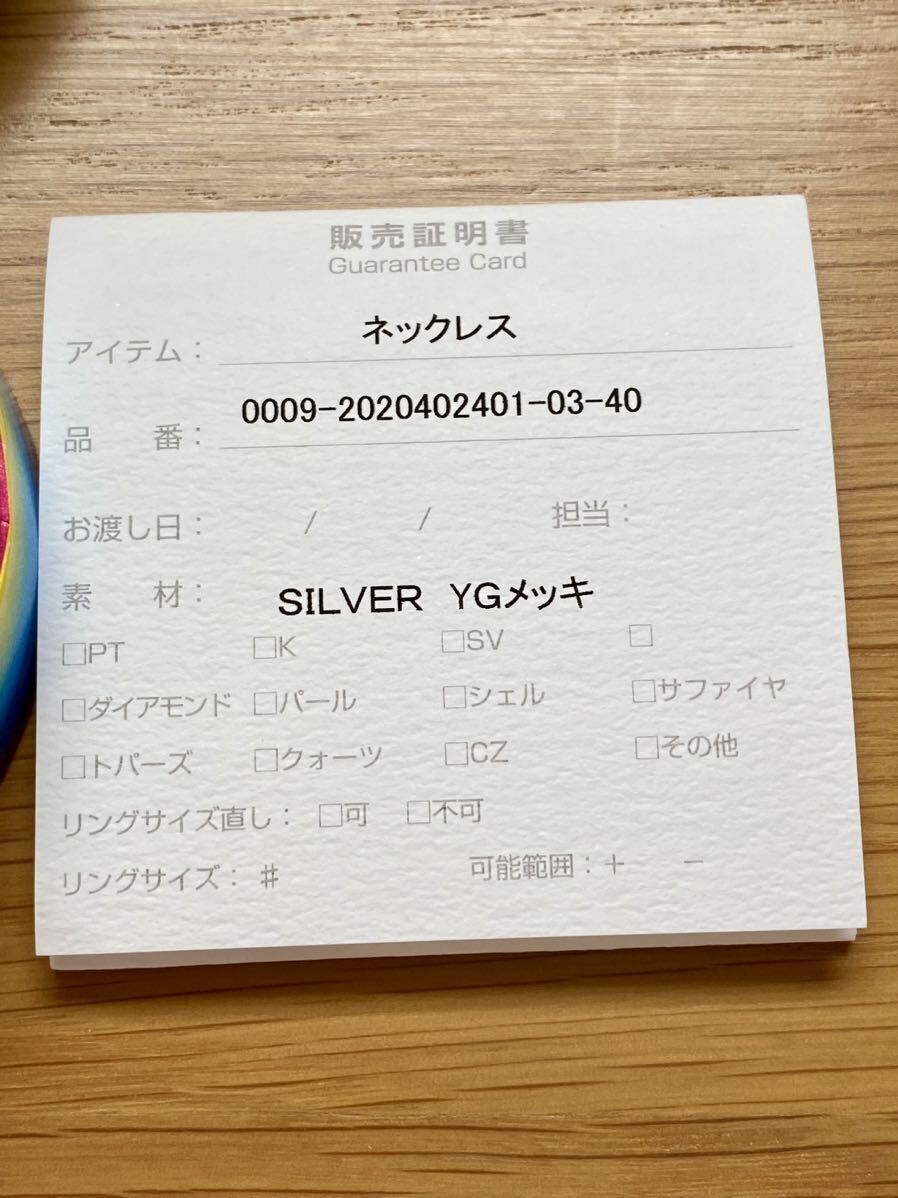 販売証明書
Guarantee Card
アイテム： ネックレス
品　　番： 0009-2020402401-03-40
お渡し日：　　/　　/　　担当：
素　　材： SILVER YGメッキ
□PT □K □SV □
□ダイアモンド □パール □シェル □サファイヤ
□トパーズ □クォーツ □CZ □その他
リングサイズ直し： □可 □不可
リングサイズ：♯　　可能範囲：＋　　－